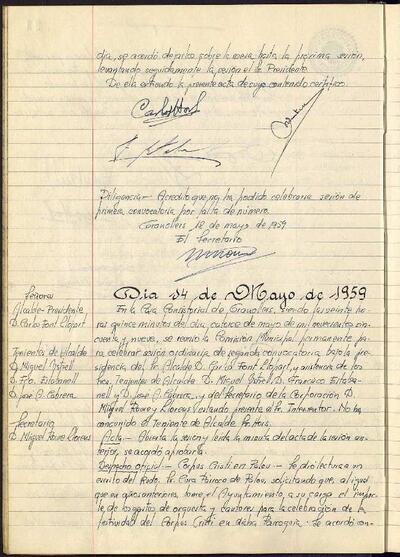 dia, se acordó dejarlos sobre la mesa hasta la próxima sesión,
levantando seguidamente la sesión el Sr. Presidente.
De ella extiendo la presente acta de cuyo contenido certifico.
Diligencia.- Acredito que no ha podido celebrarse sesión de
primera convocatoria por falta de número.
Granollers 12 de mayo de 1959
El Secretario
Dia 14 de Mayo de 1959
Señores
Alcalde-Presidente
D. Carlos Font Llopart
Tenientes de Alcalde
D. Miguel
D. Fco. Estabanell
D. José A. Cabrera
Secretario
D. Miguel Llorens
En la Casa Consistorial de Granollers, siendo las veinte ho-
ras quince minutos del dia catorce de mayo de mil novecientos cin-
cuenta y nueve, se reunió la Comisión Municipal permanente pa-
ra celebrar sesión ordinaria de segunda convocatoria bajo la pre-
sidencia del Sr. Alcalde D. Carlos Font Llopart, y asistencia de los
Ttes. Tenientes de Alcalde D. Miguel D. Francisco Estaba-
nell y D. José A. Cabrera, y del Secretario de la Corporación D.
Miguel y Llorens estando presente el Sr. Interventor. No ha
concurrido el Teniente de Alcalde Sr.
Acta.- Abierta la sesión y leída la minuta del acta de la sesión an-
terior, se acordó aprobarla.
Despacho oficial.- Corpus Cristi en Palou.- Se dió lectura a un
escrito del Rvdo. Sr. Cura Párroco de Palou, solicitando que, al igual
que en años anteriores, tome el Ayuntamiento a su cargo el impor-
te de los gastos de orquesta y cantores para la celebración de la
festividad del Corpus Cristi en dicha Parroquia. Se acordó con-